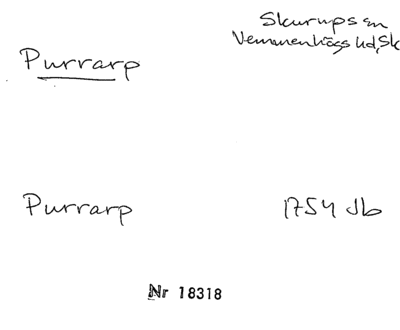 Skurups sn
Vemmenhögs hd, Sk
Purrarp
Purrarp 1754 Jb
Nr 18318